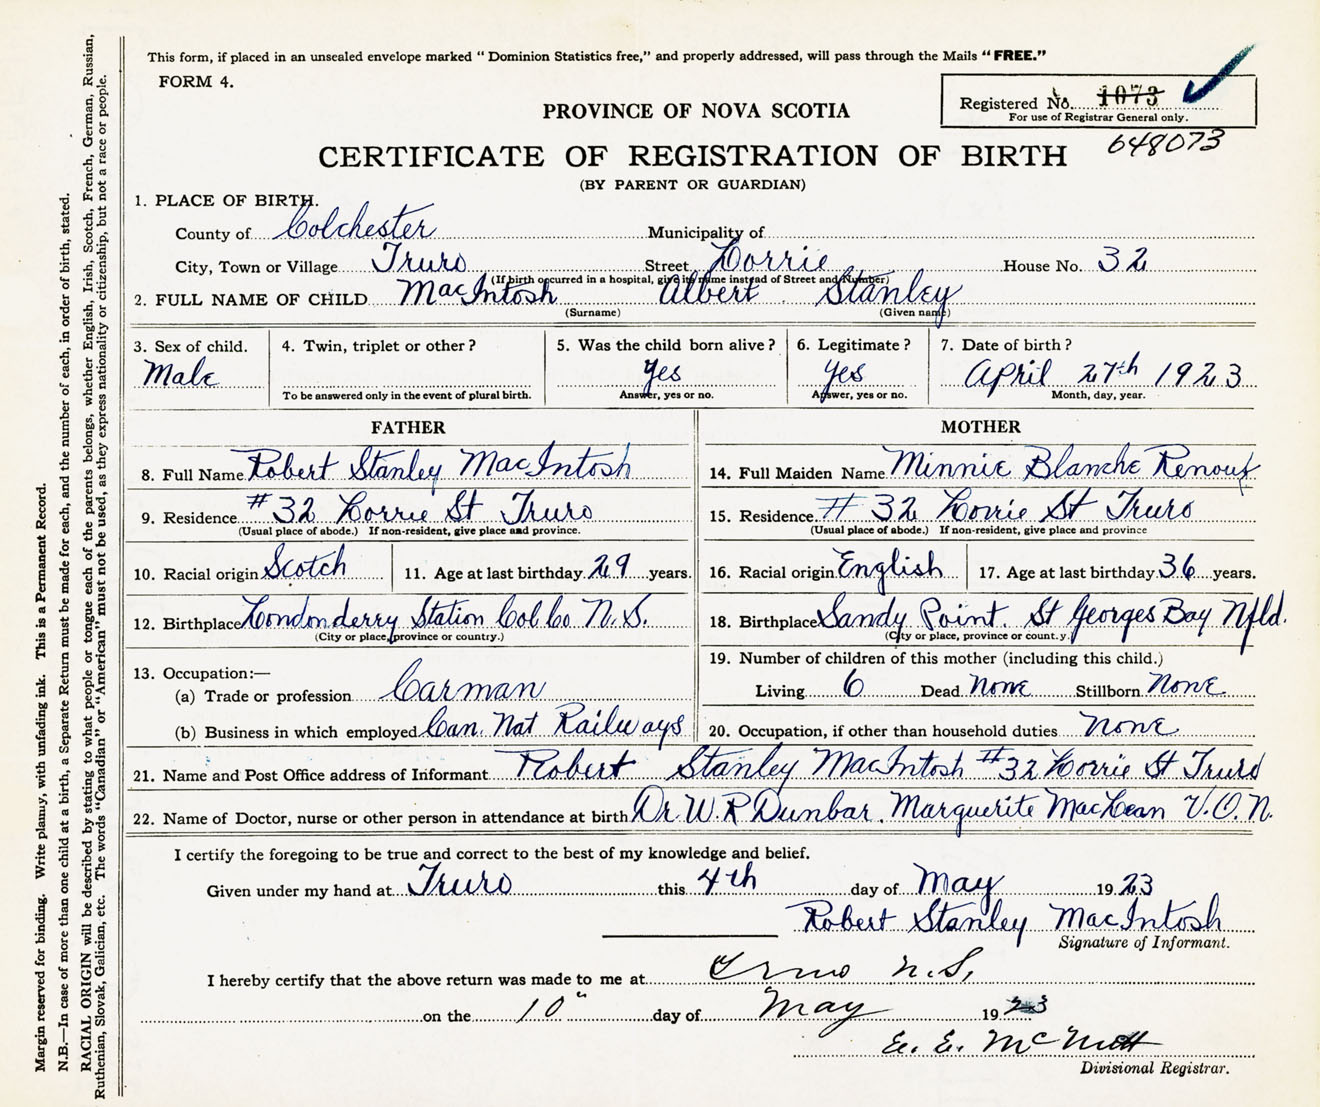 This form, if placed in an unsealed envelope marked "Dominion Statistics free," and properly addressed, will pass through the Mails "FREE."
FORM 4.
Registered No. 1073
For use of Registrar General only.
648073
PROVINCE OF NOVA SCOTIA
CERTIFICATE OF REGISTRATION OF BIRTH
(BY PARENT OR GUARDIAN)
1. PLACE OF BIRTH.
County of Colchester Municipality of
City, Town or Village Truro Street Lorrie House No. 32
(If birth occurred in a hospital, give its name instead of Street and Number)
2. FULL NAME OF CHILD MacIntosh Albert Stanley
(Surname) (Given name)
3. Sex of child. 4. Twin, triplet or other? 5. Was the child born alive? 6. Legitimate? 7. Date of birth?
Male Yes Yes April 27th 1923
To be answered only in the event of plural birth. Answer, yes or no. Answer, yes or no. Month, day, year.
FATHER
8. Full Name Robert Stanley MacIntosh
9. Residence #32 Lorrie St Truro
(Usual place of abode.) If non-resident, give place and province.
10. Racial origin Scotch 11. Age at last birthday 29 years.
12. Birthplace Londonderry Station Col Co N.S.
(City or place, province or country.)
13. Occupation:—
(a) Trade or profession Carman
(b) Business in which employed Can. Nat Railways
MOTHER
14. Full Maiden Name Minnie Blanche Renouf
15. Residence # 32 Lorrie St Truro
(Usual place of abode.) If non-resident, give place and province
16. Racial origin English 17. Age at last birthday 36 years.
18. Birthplace Sandy Point. St Georges Bay Nfld.
(City or place, province or count.y.)
19. Number of children of this mother (including this child.)
Living 6 Dead None Stillborn None
20. Occupation, if other than household duties none
21. Name and Post Office address of Informant Robert Stanley MacIntosh #32 Lorrie St Truro
22. Name of Doctor, nurse or other person in attendance at birth Dr. W. R Dunbar. Marguerite MacLean V.O.N.
I certify the foregoing to be true and correct to the best of my knowledge and belief.
Given under my hand at Truro this 4th day of May 1923
Robert Stanley MacIntosh
Signature of Informant.
I hereby certify that the above return was made to me at Truro N.S,
on the 10" day of May 1923
E. E. McNutt
Divisional Registrar.
Margin reserved for binding. Write plainly, with unfading ink. This is a Permanent Record.
N.B.—In case of more than one child at a birth, a Separate Return must be made for each, and the number of each, in order of birth, stated.
RACIAL ORIGIN will be described by stating to what people or tongue each of the parents belongs, whether English, Irish, Scotch, French, German, Russian,
Ruthenian, Slovak, Galician, etc. The words "Canadian" or "American" must not be used, as they express nationality or citizenship, but not a race or people.